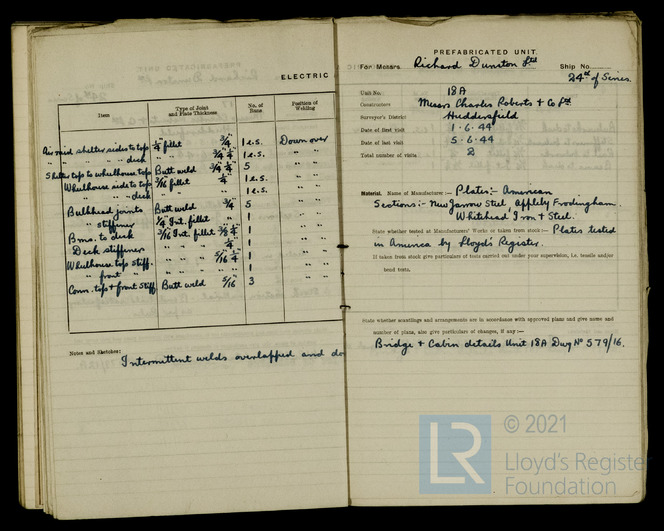 ELECTRIC
Item
Type of Joint and Plate Thickness
No. of Runs
Position of Welding
Air raid shelter sides to top 1/4 fillet 3/4 1 e.s. Down over
" " " " deck " " 3/4 1/4 1 e.s. " "
Shelter top to wheelhouse top Butt weld 3/4 1/4 5 " "
Wheelhouse side to top 3/16 fillet 1/4 1 e.s. " "
" " " deck " " 1 e.s. " "
Bulkhead joints Butt weld 3/4 5 " "
" stiffener 1/4 Int. fillet " 1 " "
Bms. to deck 3/16 Int. fillet 3/8 1/4 1 " "
Deck stiffener " " " 1/4 1 " "
Wheelhouse top stiff. " " " 5/16 1/4 1 " "
" front " " " " " 1 " "
Conn. top + front stiff. Butt weld 5/16 3 " "
Notes and Sketches:
Intermittent welds overlapped and do
PREFABRICATED UNIT.
For Messrs. Richard Dunston Ltd Ship No.
24th of Series
Unit No. 18A
Constructors Messrs Charles Roberts & Co Ltd
Surveyor's District Huddersfield
Date of first visit 1.6.44
Date of last visit 5.6.44
Total number of visits 2
Material. Name of Manufacturer:— Plates:- American
Sections:- New Jarrow Steel, Appleby Frodingham.
Whitehead Iron & Steel.
State whether tested at Manufacturers' Works or taken from stock:— Plates tested
in America by Lloyds Register.
If taken from stock give particulars of tests carried out under your supervision, i.e. tensile and/or
bend tests.
State whether scantlings and arrangements are in accordance with approved plans and give name and
number of plans, also give particulars of changes, if any:—
Bridge & Cabin details Unit 18A Dwg No 579/16.
LR
© 2021
Lloyd's Register
Foundation